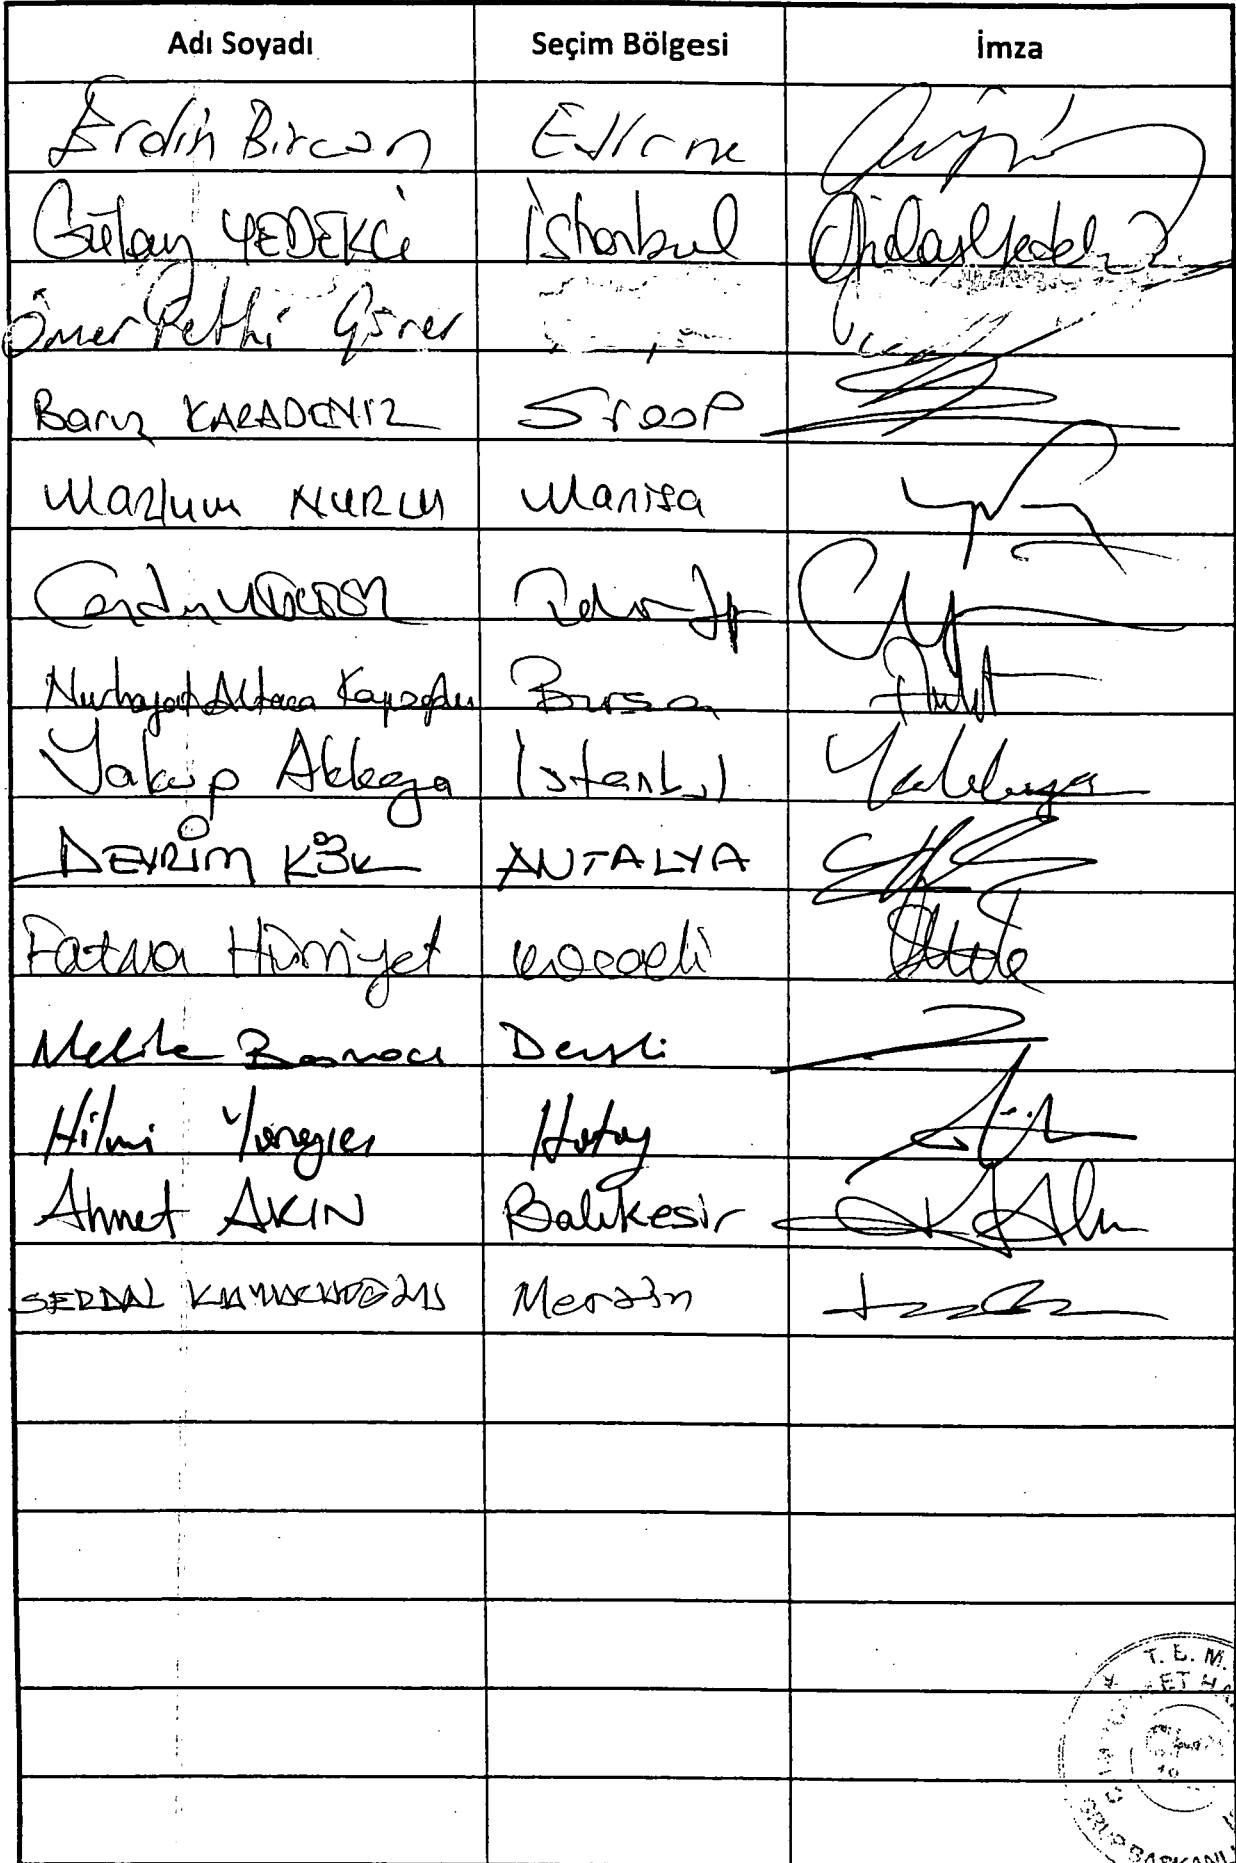 Adı Soyadı Seçim Bölgesi İmza
Erdin Bircan Edirne
Gülay YEDEKCİ İstanbul Gülay Yedekci
Ömer Fethi Gürer
Barış KARADENİZ Sinop
Mazlum NURLU Manisa
Candan Tekirdağ
Nurhayat Altaca Kayışoğlu Bursa
Yakup Akkaya İstanbul
DEVRİM KÖK ANTALYA
Fatma Hürriyet Kocaeli
Melike Basmacı Denizli
Hilmi Yarayıcı Hatay
Ahmet AKIN Balıkesir
SERDAL KUYUCUOĞLU Mersin
T. B. M.